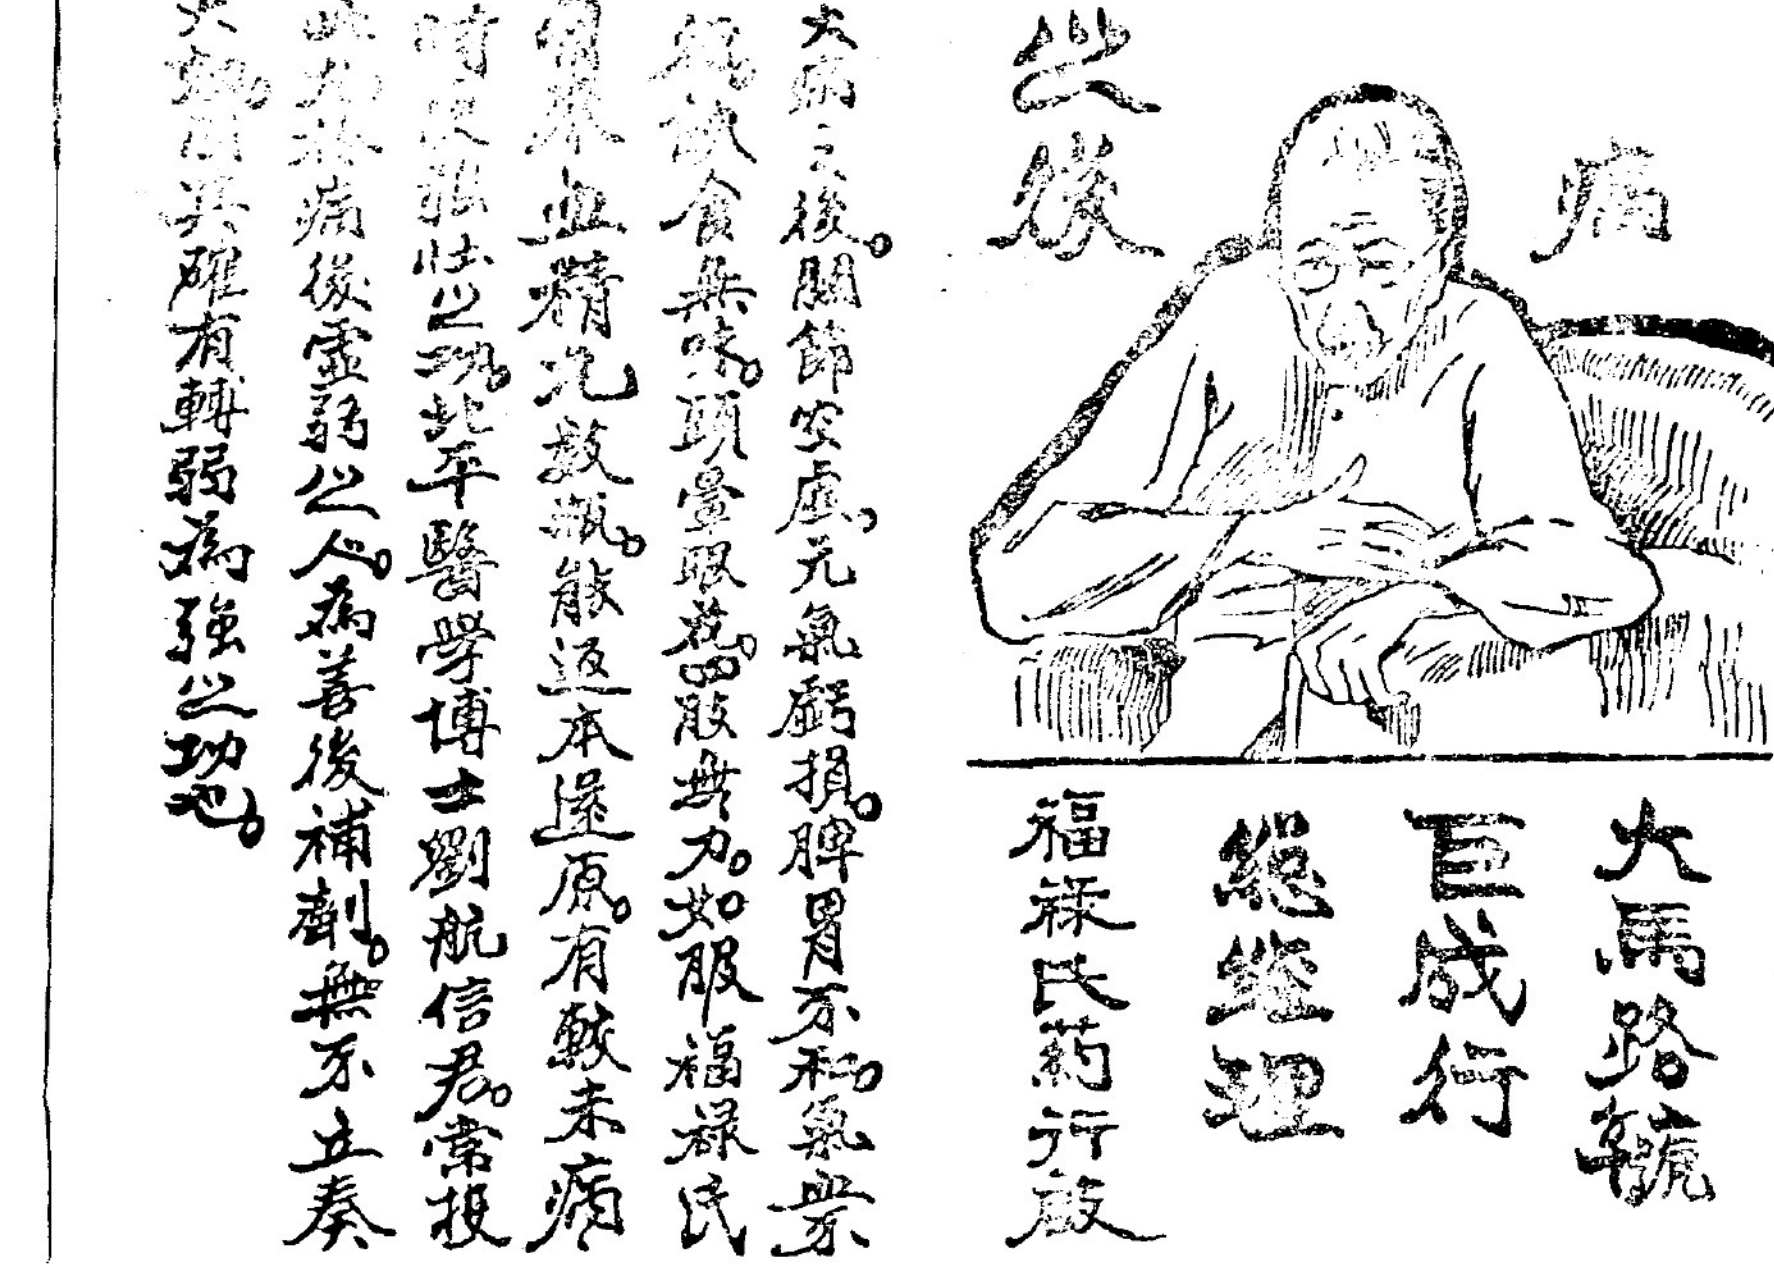 病
之後
大馬路轆
巨成行
總經理
福祿氏药行啟
大病之後。關節空虛。元氣虧損。脾胃不和。氣
飲食無味。頭暈眼花。四肢無力。如服福祿氏
血精 數瓶。能返本還原。有較未病
時 壯之功。北平醫學博士劉航信君。常投
病後虛弱之人。為善後補劑。無不立奏
確有轉弱為強之功也。